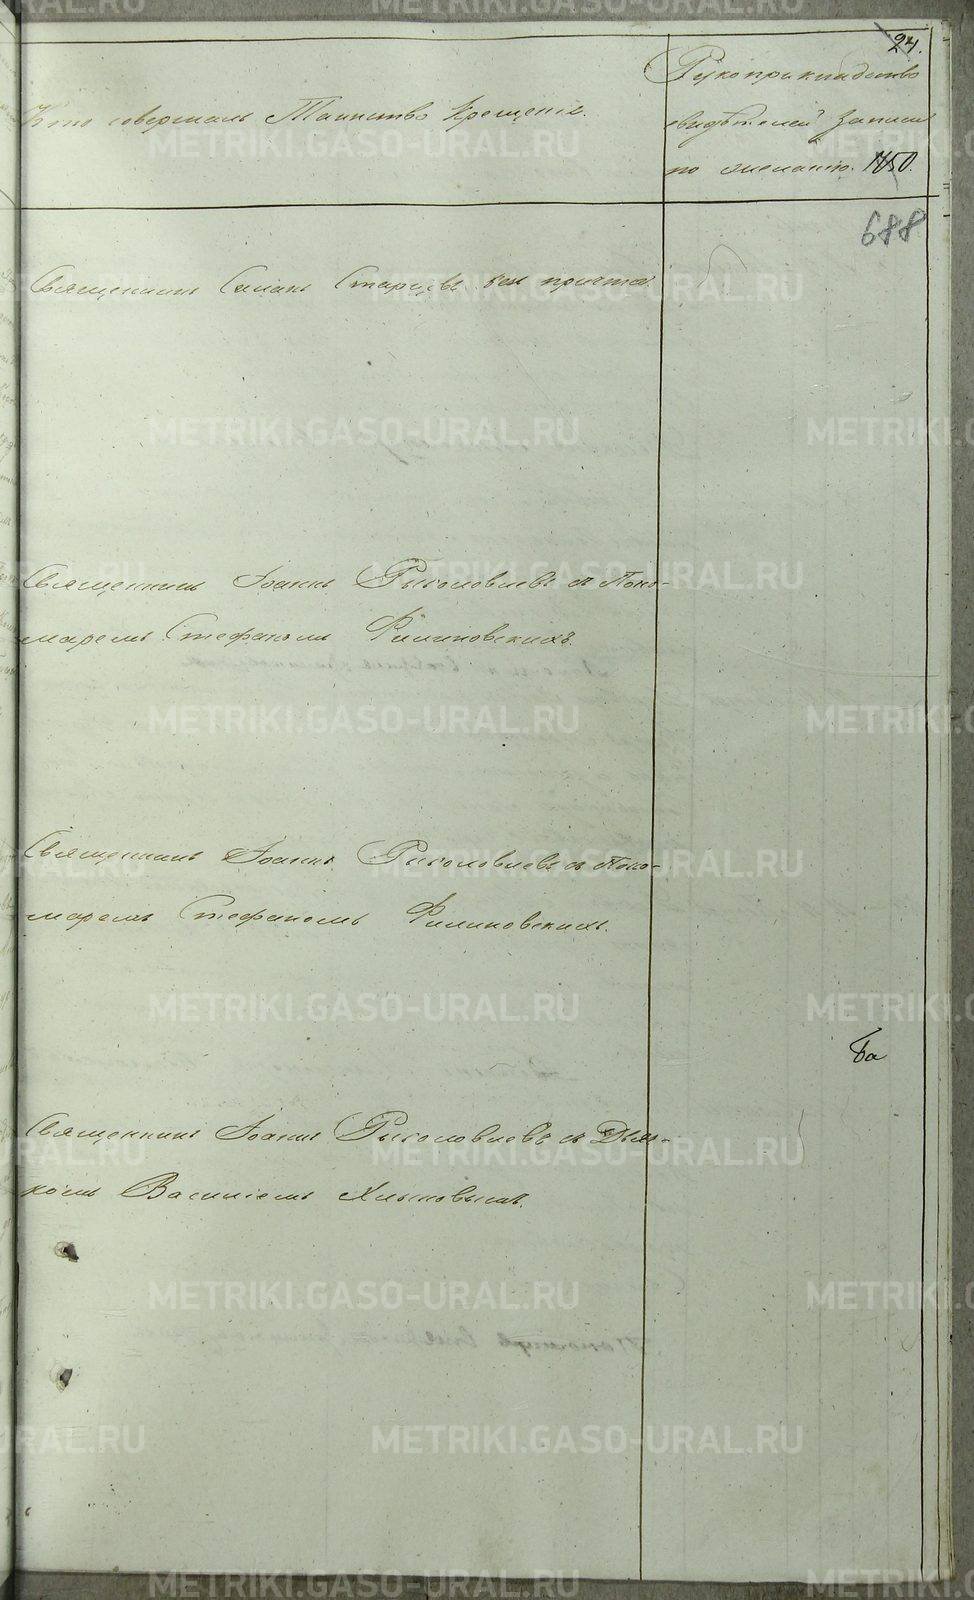 24.
Кто совершалъ Таинство Крещенія.
Рукоприкладство
свидѣтелей записи
по желанію. 1850.
688
Священникъ Симонъ Старцевъ безъ причта.
Священникъ Іоаннъ Рыболовлевъ съ Поно-
маремъ Стефаномъ Филиповскихъ.
Священникъ Іоаннъ Рыболовлевъ съ Поно-
маремъ Стефаномъ Филиповскихъ.
Ба
Священникъ Іоаннъ Рыболовлевъ съ Дьяч-
комъ Василіемъ Хлыновымъ.
METRIKI.GASO-URAL.RU